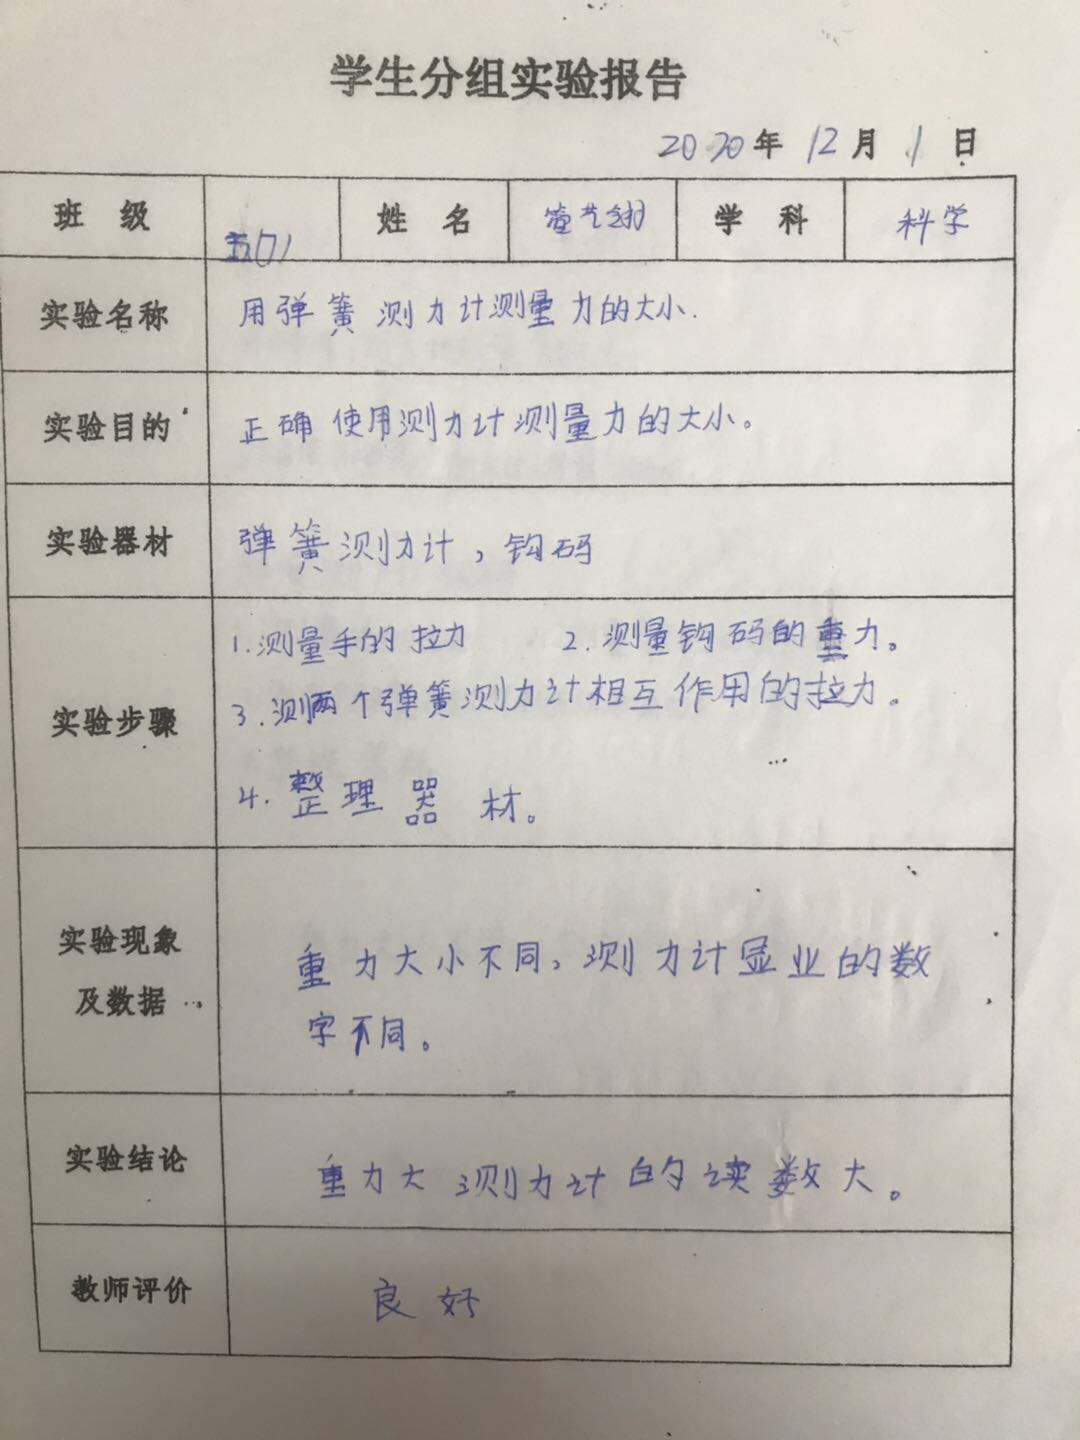 学生分组实验报告
2020年 12月 1日
班 级 五01 姓 名 学 科 科学
实验名称 用弹簧测力计测量力的大小.
实验目的 正确使用测力计测量力的大小。
实验器材 弹簧测力计，钩码
实验步骤
1.测量手的拉力 2.测量钩码的重力。
3.测两个弹簧测力计相互作用的拉力。
4.整理器材。
实验现象
及数据
重力大小不同，测力计显业的数
字不同。
实验结论 重力大测力计的读数大。
教师评价 良好